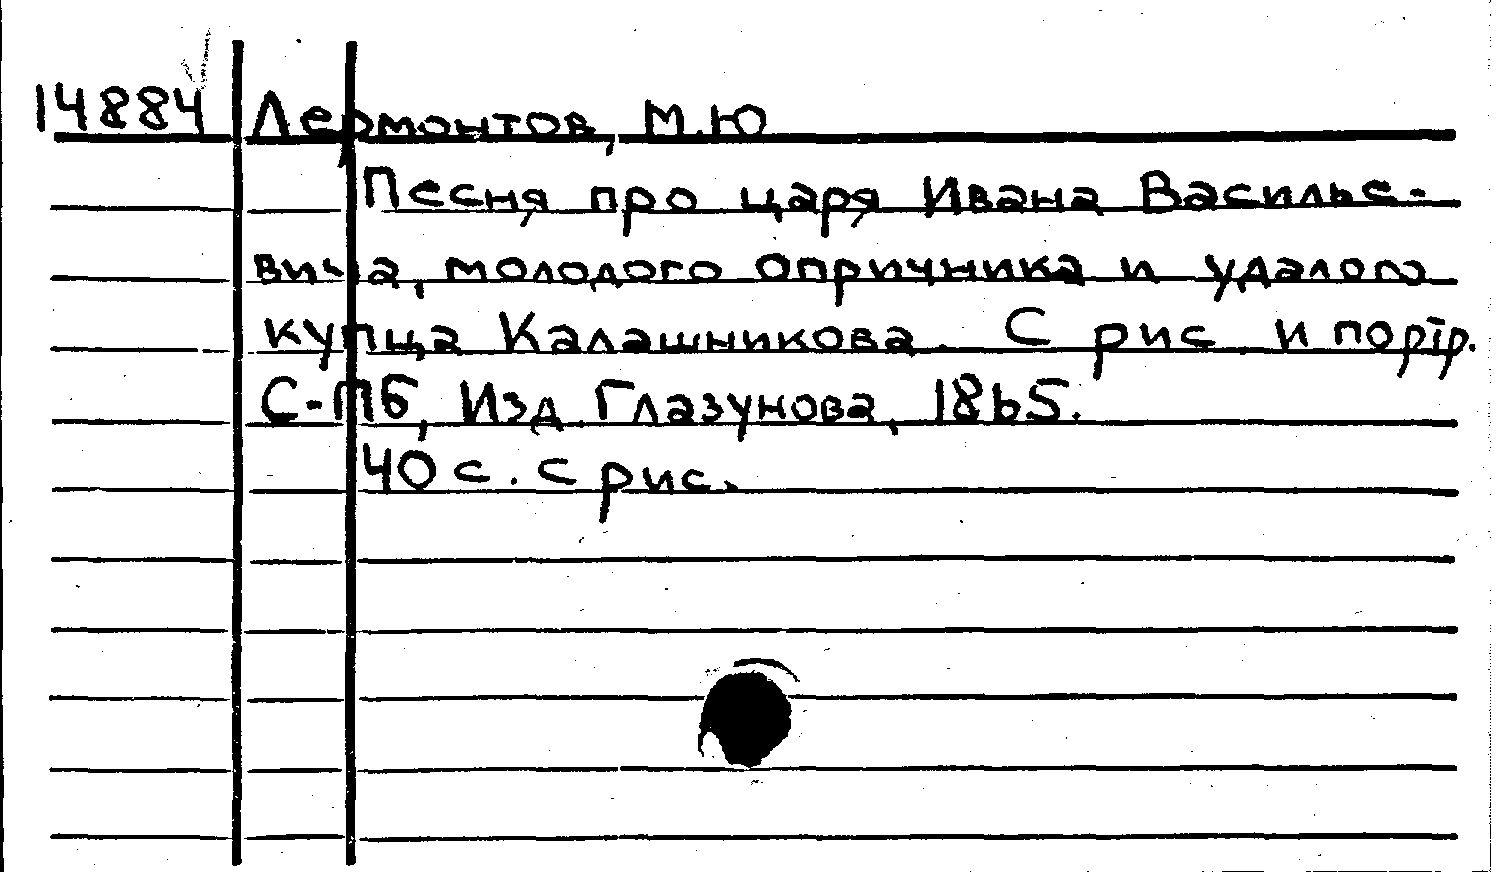 14884 Лермонтов, М.Ю
Песня про царя Ивана Василье-
вича, молодого опричника и удалого
купца Калашникова. С рис и портр.
С-Пб, Изд. Глазунова, 1865.
40 с. с рис.